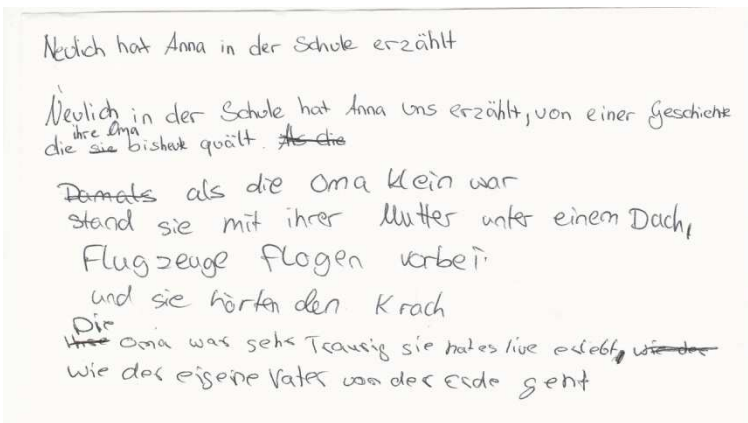 Neulich hat Anna in der Schule erzählt
Neulich in der Schule hat Anna uns erzählt, von einer Geschichte
ihre Oma
die sie bisheute quält. Als die
Damals als die Oma klein war
stand sie mit ihrer Mutter unter einem Dach,
Flugzeuge flogen vorbei
und sie hörten den Krach
Die
Ihre Oma war sehr Traurig sie hat es live erlebt, wie der
wie der eigene Vater von der Erde geht